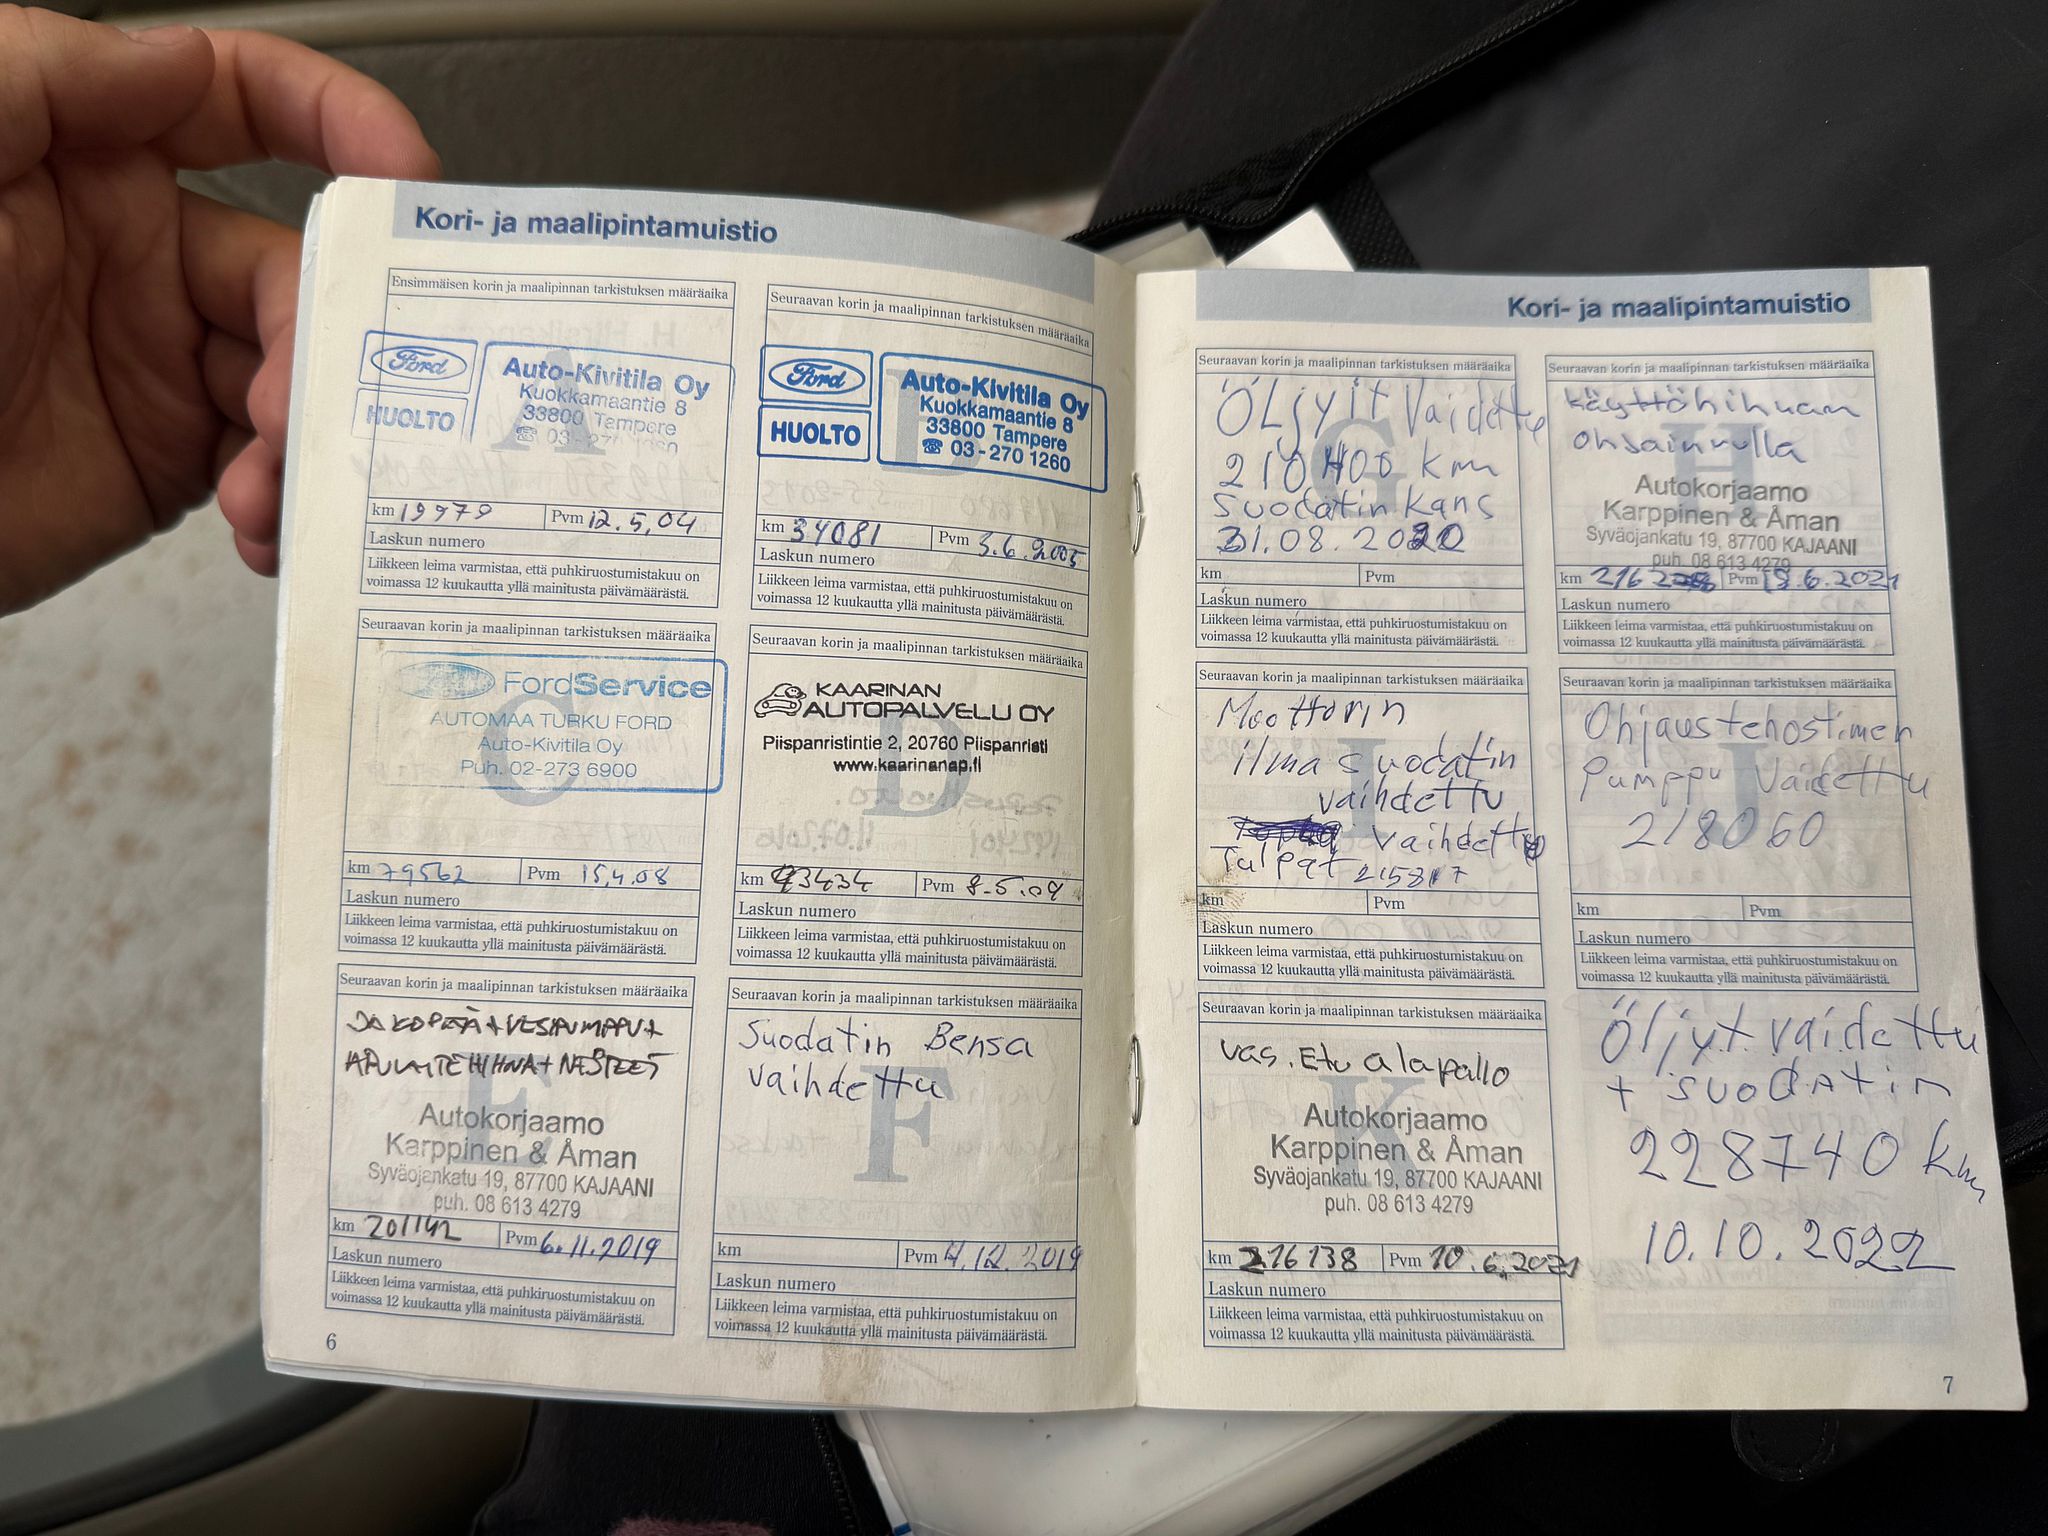 Kori- ja maalipintamuistio
Ensimmäisen korin ja maalipinnan tarkistuksen määräaika
Ford
HUOLTO
Auto-Kivitila Oy
Kuokkamaantie 8
33800 Tampere
☎ 03-270 1260
A
km 19979
Pvm 12.5.04
Laskun numero
Liikkeen leima varmistaa, että puhkiruostumistakuu on
voimassa 12 kuukautta yllä mainitusta päivämäärästä.
Seuraavan korin ja maalipinnan tarkistuksen määräaika
Ford
HUOLTO
Auto-Kivitila Oy
Kuokkamaantie 8
33800 Tampere
☎ 03-270 1260
B
km 34081
Pvm 3.6.2005
Laskun numero
Liikkeen leima varmistaa, että puhkiruostumistakuu on
voimassa 12 kuukautta yllä mainitusta päivämäärästä.
Seuraavan korin ja maalipinnan tarkistuksen määräaika
FordService
AUTOMAA TURKU FORD
Auto-Kivitila Oy
Puh. 02-273 6900
C
km 79562
Pvm 15.4.08
Laskun numero
Liikkeen leima varmistaa, että puhkiruostumistakuu on
voimassa 12 kuukautta yllä mainitusta päivämäärästä.
Seuraavan korin ja maalipinnan tarkistuksen määräaika
KAARINAN
AUTOPALVELU OY
Piispanristintie 2, 20760 Piispanristi
www.kaarinanap.fi
D
km 93434
Pvm 8.5.09
Laskun numero
Liikkeen leima varmistaa, että puhkiruostumistakuu on
voimassa 12 kuukautta yllä mainitusta päivämäärästä.
Seuraavan korin ja maalipinnan tarkistuksen määräaika
JAKOPÄÄ+VESIPUMPPU+
APULAITEHIHNA+NESTEET
Autokorjaamo
Karppinen & Åman
Syväojankatu 19, 87700 KAJAANI
puh. 08 613 4279
E
km 201142
Pvm 6.11.2019
Laskun numero
Liikkeen leima varmistaa, että puhkiruostumistakuu on
voimassa 12 kuukautta yllä mainitusta päivämäärästä.
Seuraavan korin ja maalipinnan tarkistuksen määräaika
Suodatin Bensa
Vaihdettu
F
km
Pvm 4.12.2019
Laskun numero
Liikkeen leima varmistaa, että puhkiruostumistakuu on
voimassa 12 kuukautta yllä mainitusta päivämäärästä.
6
Kori- ja maalipintamuistio
Seuraavan korin ja maalipinnan tarkistuksen määräaika
Öljyit Vaidettu
210400 km
suodatin kans
31.08.2020
G
km
Pvm
Laskun numero
Liikkeen leima varmistaa, että puhkiruostumistakuu on
voimassa 12 kuukautta yllä mainitusta päivämäärästä.
Seuraavan korin ja maalipinnan tarkistuksen määräaika
Käyttöhihnan
Autokorjaamo
Karppinen & Åman
Syväojankatu 19, 87700 KAJAANI
puh. 08 613 4279
H
km
Pvm
Laskun numero
Liikkeen leima varmistaa, että puhkiruostumistakuu on
voimassa 12 kuukautta yllä mainitusta päivämäärästä.
Seuraavan korin ja maalipinnan tarkistuksen määräaika
Moottorin
ilma suodatin
vaihdettu
vaihdettu
Tulpat 215817
I
km
Pvm
Laskun numero
Liikkeen leima varmistaa, että puhkiruostumistakuu on
voimassa 12 kuukautta yllä mainitusta päivämäärästä.
Seuraavan korin ja maalipinnan tarkistuksen määräaika
Ohjaustehostimen
Pumppu Vaidettu
218060
J
km
Pvm
Laskun numero
Liikkeen leima varmistaa, että puhkiruostumistakuu on
voimassa 12 kuukautta yllä mainitusta päivämäärästä.
Seuraavan korin ja maalipinnan tarkistuksen määräaika
vas. Etu alapallo
Autokorjaamo
Karppinen & Åman
Syväojankatu 19, 87700 KAJAANI
puh. 08 613 4279
K
km 216138
Pvm 10.6.2021
Laskun numero
Liikkeen leima varmistaa, että puhkiruostumistakuu on
voimassa 12 kuukautta yllä mainitusta päivämäärästä.
Öljyt vaidettu
+ suodatin
228740 km
10.10.2022
7